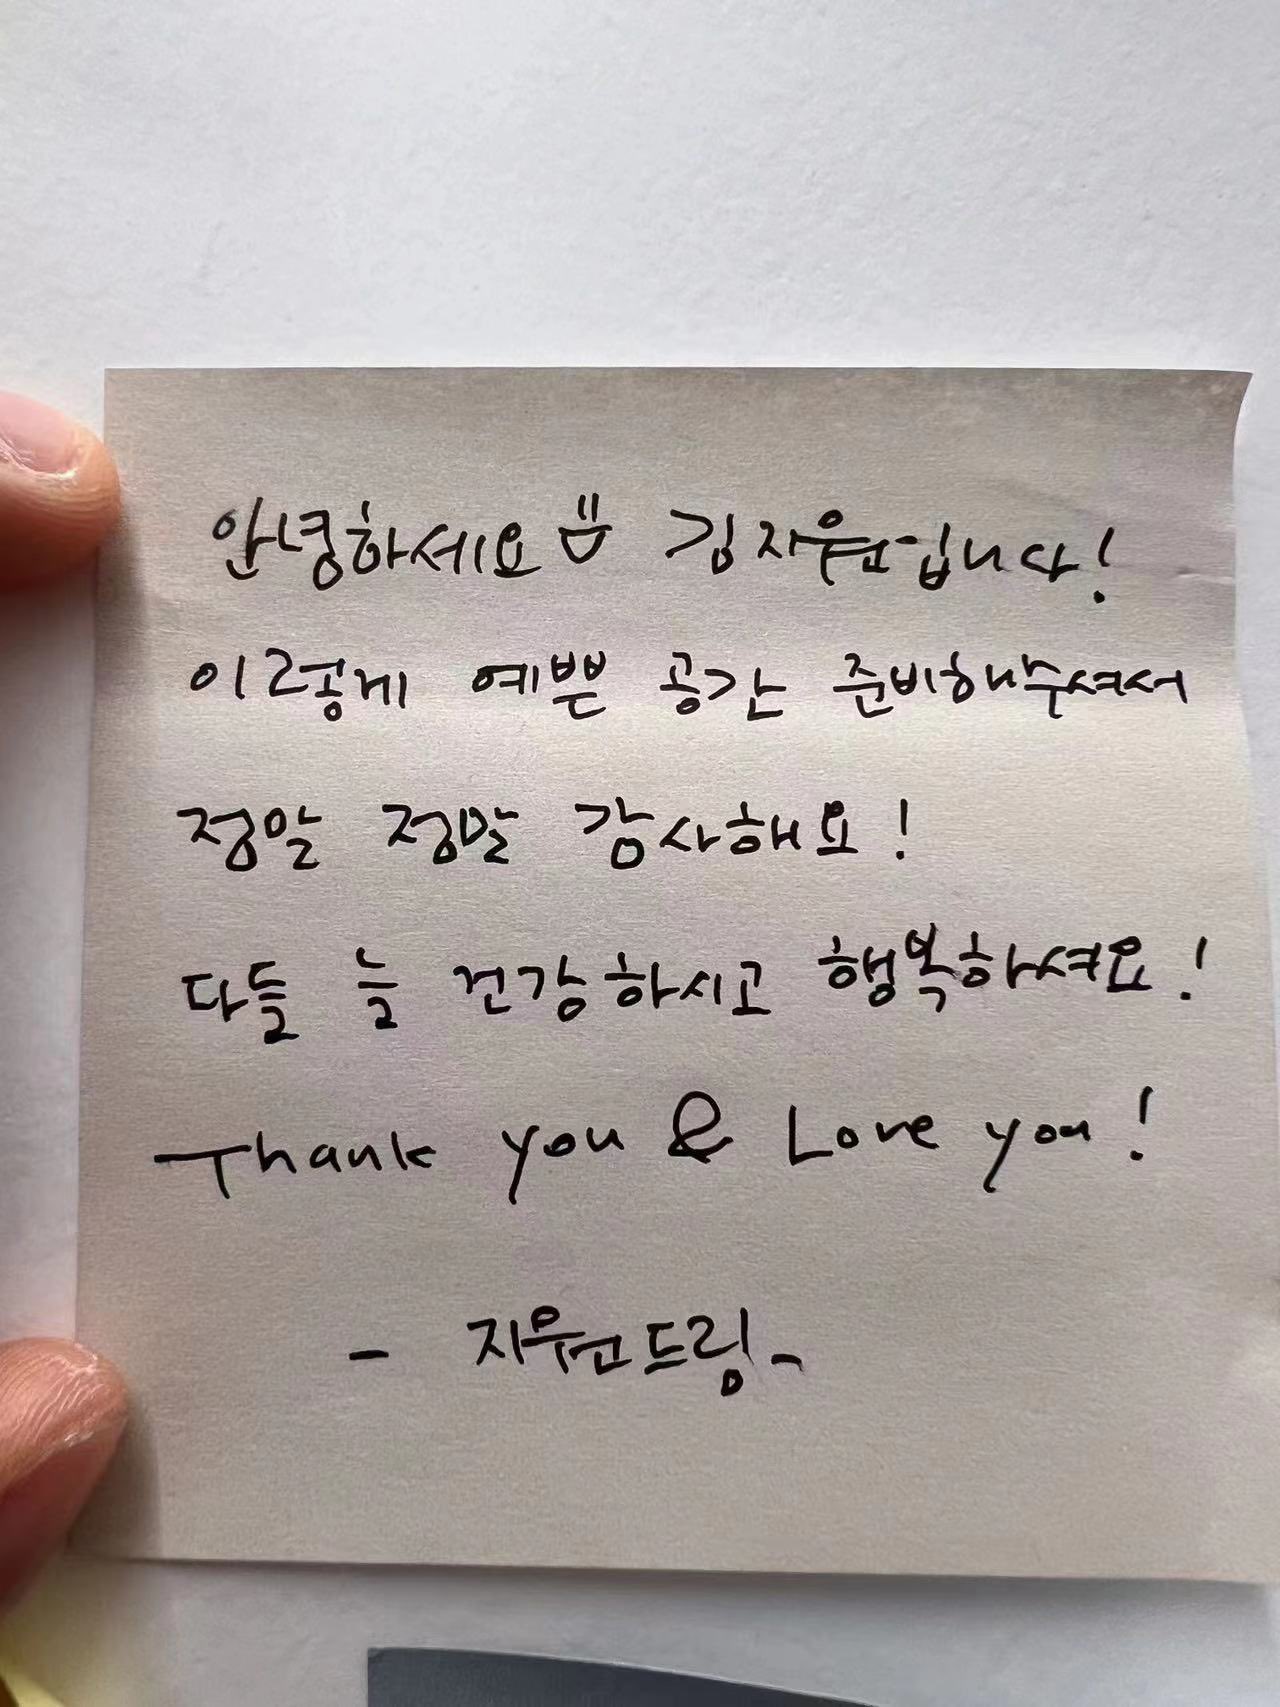 안녕하세요 김지원입니다!
이렇게 예쁜 공간 준비해주셔서
정말 정말 감사해요!
다들 늘 건강하시고 행복하셔요!
Thank you & Love you!
- 지원드림-